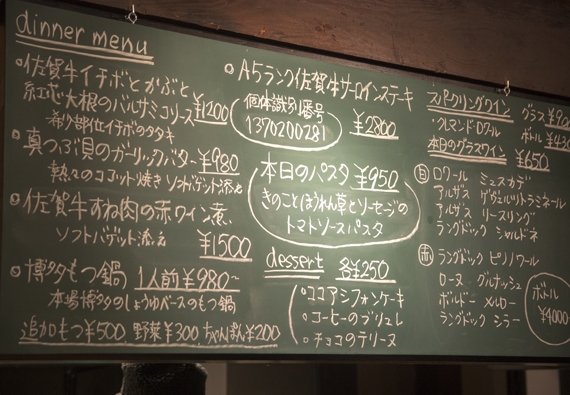 dinner menu
佐賀牛イチボとかぶと
紅芯大根のバルサミコソース ¥1200
希少部位イチボのタタキ
真つぶ貝のガーリックバター ¥980
熱々のココット焼き ソフトバゲット添え
佐賀牛すね肉の赤ワイン煮、
ソフトバゲット添え
¥1500
博多もつ鍋 1人前 ¥980~
本場博多のしょうゆベースのもつ鍋
追加もつ¥500、野菜¥300、ちゃんぽん¥200
A5ランク佐賀牛サーロインステーキ
個体識別番号
1370200281
¥2800
本日のパスタ ¥950
きのことほうれん草とソーセージの
トマトソースパスタ
dessert 各¥250
ココアシフォンケーキ
コーヒーのブリュレ
チョコのテリーヌ
スパークリングワイン グラス
クレマンドロワール ボトル
本日のグラスワイン ¥650
白 ロワール ミュスカデ
アルザス ゲヴュルツトラミネール
アルザス リースリング
ラングドック シャルドネ
赤 ラングドック ピノノワール
ローヌ グルナッシュ
ボルドー メルロー
ラングドック シラー
ボトル
¥4000